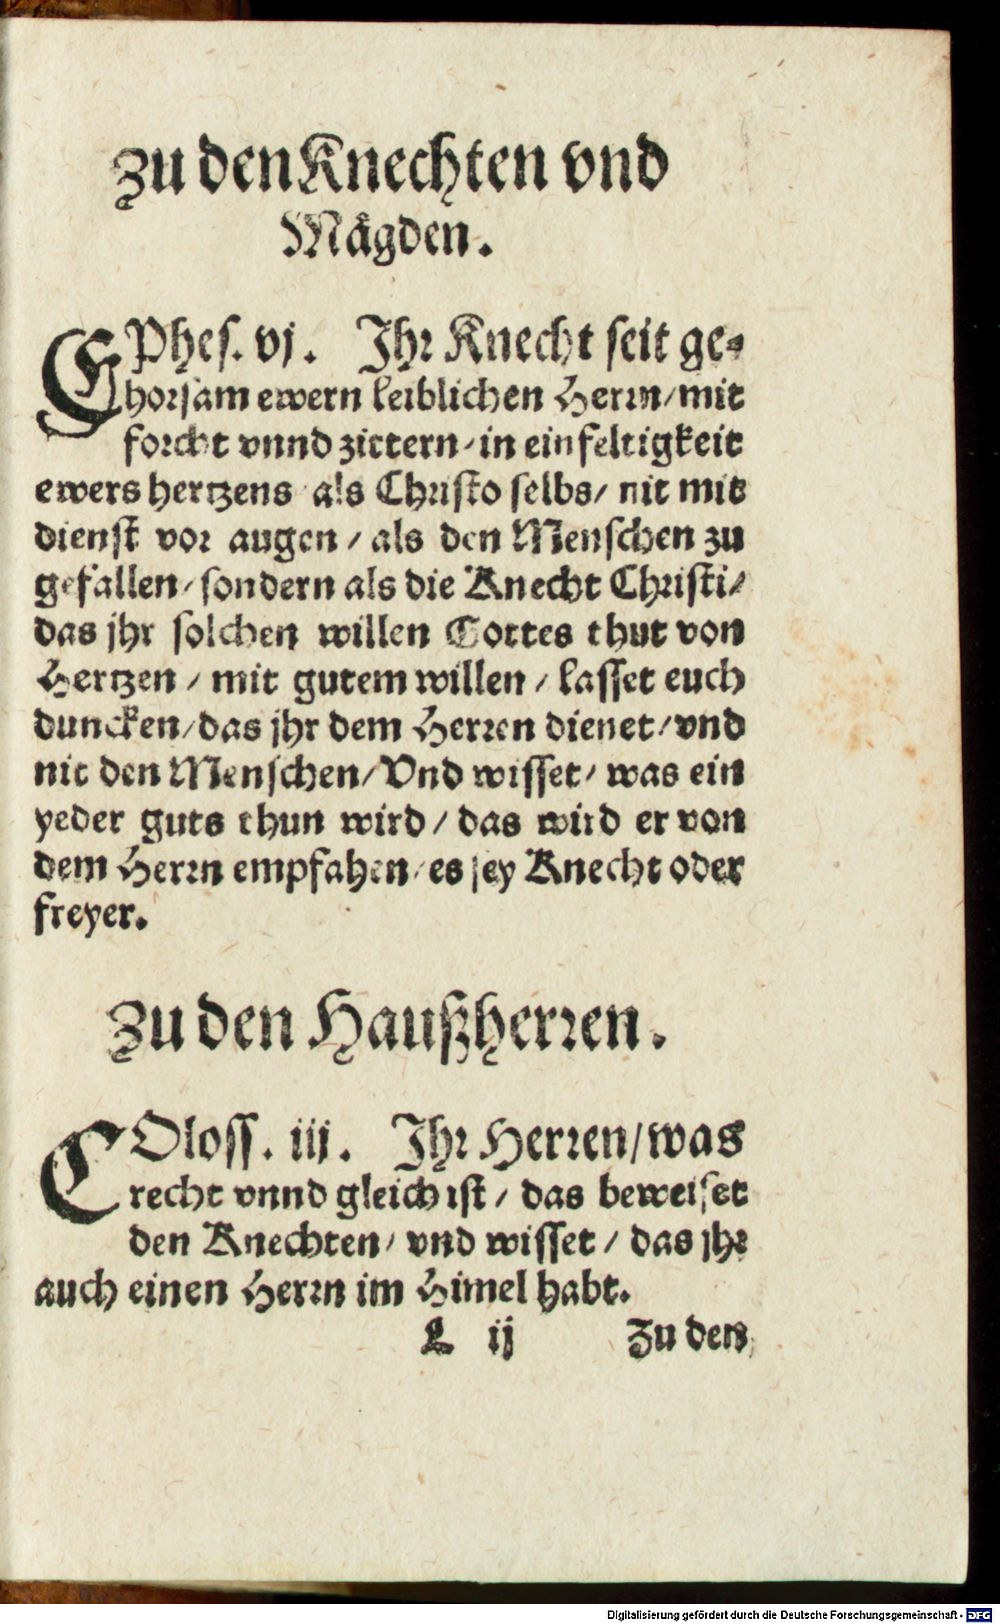 Zu den Knechten vnd
Mägden.
EPhes. vj. Ihr Knecht seit ge-
horsam ewern leiblichen Herrn/mit
forcht vnnd zittern/in einfeltigkeit
ewers hertzens als Christo selbs/nit mit
dienst vor augen/als den Menschen zu
gefallen/sondern als die Knecht Christi/
das jhr solchen willen Gottes thut von
Hertzen/mit gutem willen/lasset euch
duncken/das jhr dem Herren dienet/vnd
nit den Menschen/Vnd wisset/was ein
yeder guts thun wird/das wird er von
dem Herrn empfahen/es sey Knecht oder
freyer.
Zu den Haußherren.
COloss. iij. Ihr Herren/was
recht vnnd gleich ist/das beweiset
den Knechten/vnd wisset/das jhr
auch einen Herrn im Himel habt.
L ij Zu den
Digitalisierung gefördert durch die Deutsche Forschungsgemeinschaft - DFG